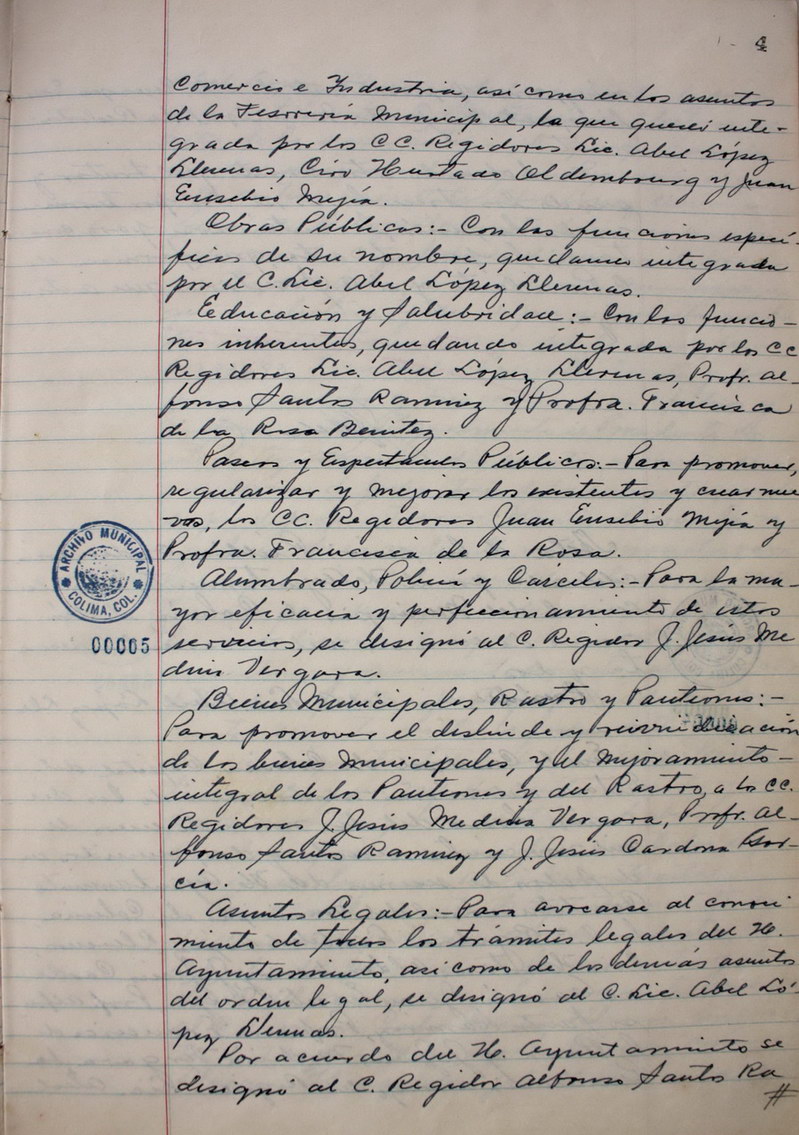 4
Comercio e Industria, así como en los asuntos
de la Tesorería Municipal, la que quedó inte-
grada por los CC. Regidores Lic. Abel López
Llerenas, Ciro Hurtado Oldembourg y Juan
Eusebio Mejía.
Obras Públicas:- Con las funciones especí-
ficas de su nombre, quedando integrada
por el C. Lic. Abel López Llerenas.
Educación y Salubridad:- Con las funcio-
nes inherentes, quedando integrada por los CC
Regidores Lic. Abel López Llerenas, Profr. Al-
fonso Santos Ramírez y Profra. Francisca
de la Rosa Benitez.
Paseos y Espectáculos Públicos:- Para promover,
regularizar y mejorar los existentes y crear nue
vos, los CC. Regidores Juan Eusebio Mejía y
Profra. Francisca de la Rosa.
Alumbrado, Policía y Cárceles:- Para la ma-
yor eficacia y perfeccionamiento de estos
servicios, se designó al C. Regidor J. Jesús Me
dina Vergara.
Bienes Municipales, Rastro y Panteones:-
Para promover el deslinde y reivindicación
de los bienes Municipales, y el mejoramiento-
integral de los Panteones y del Rastro, a los CC.
Regidores J. Jesús Medina Vergara, Profr. Al-
fonso Santos Ramírez y J. Jesús Cardona Gar-
cía.
Asuntos Legales:- Para avocarse al conoci
miento de todos los trámites legales del H.
Ayuntamiento, así como de los demás asuntos
del orden legal, se designó al C. Lic. Abel Ló-
pez Llerenas.
Por acuerdo del H. Ayuntamiento se
designó al C. Regidor Alfonso Santos Ra
#
ARCHIVO MUNICIPAL
COLIMA, COL.
00005